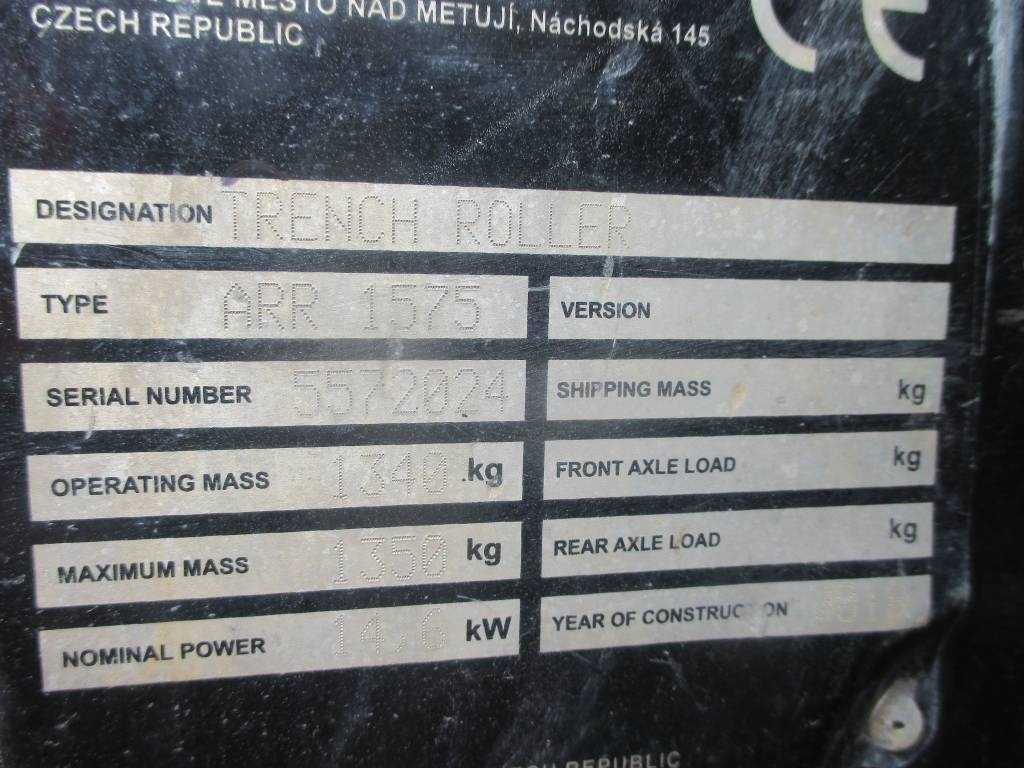 MĚSTO NAD METUJÍ, Náchodská 145
CZECH REPUBLIC
CE
DESIGNATION TRENCH ROLLER
TYPE ARR 1575
VERSION
SERIAL NUMBER 5572024
SHIPPING MASS kg
OPERATING MASS 1340 kg
FRONT AXLE LOAD kg
MAXIMUM MASS 1350 kg
REAR AXLE LOAD kg
NOMINAL POWER 14,6 kW
YEAR OF CONSTRUCTION
CZECH REPUBLIC